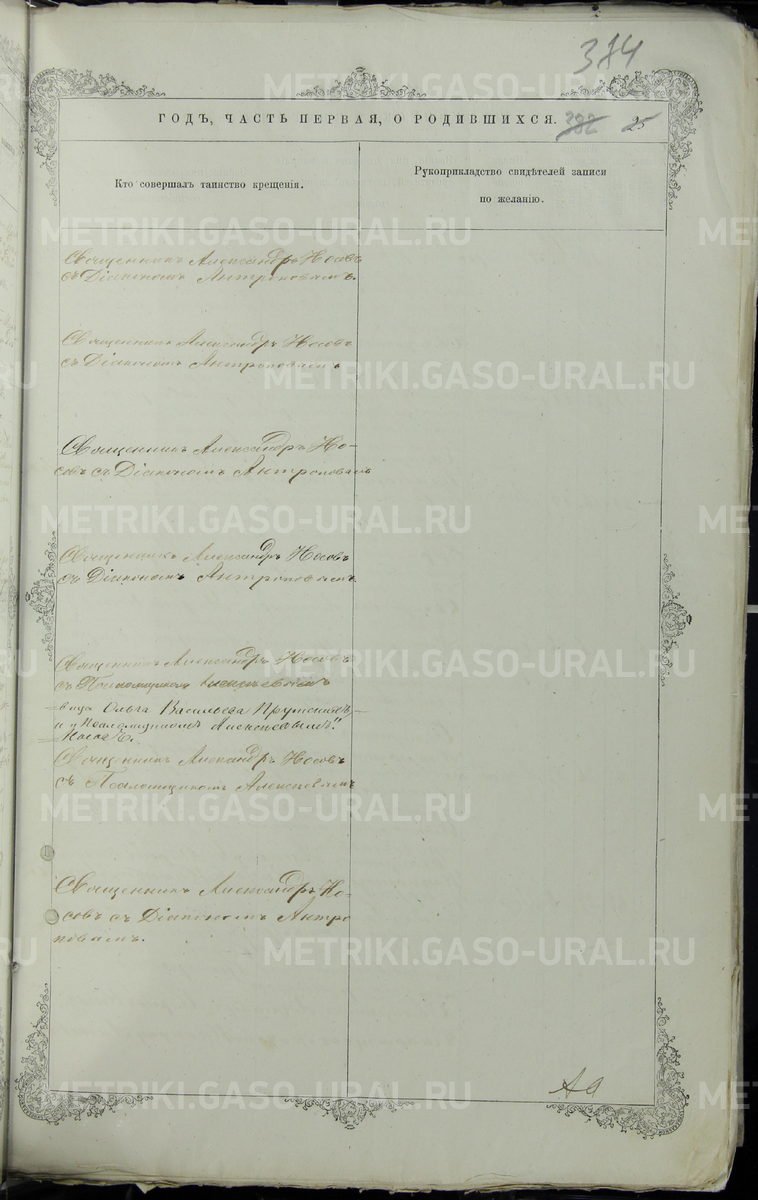 374
ГОДЪ, ЧАСТЬ ПЕРВАЯ, О РОДИВШИХСЯ. 382 25
Кто совершалъ таинство крещенія.
Рукоприкладство свидѣтелей записи
по желанію.
Священникъ Александръ Носовъ
съ Діакономъ Антроповымъ.
Священникъ Александръ Носовъ
съ Діакономъ Антроповымъ
Священникъ Александръ Но-
совъ съ Діакономъ Антроповымъ
Священникъ Александръ Носовъ
съ Діакономъ Антроповымъ
Священникъ Александръ Носовъ
съ Псаломщикомъ
Ольга Васильева
и Псаломщикомъ Алексѣевымъ."
Священникъ Александръ Носовъ
съ Псаломщикомъ Алексѣевымъ
Священникъ Александръ Но-
совъ съ Діакономъ Антро
повымъ.
METRIKI.GASO-URAL.RU